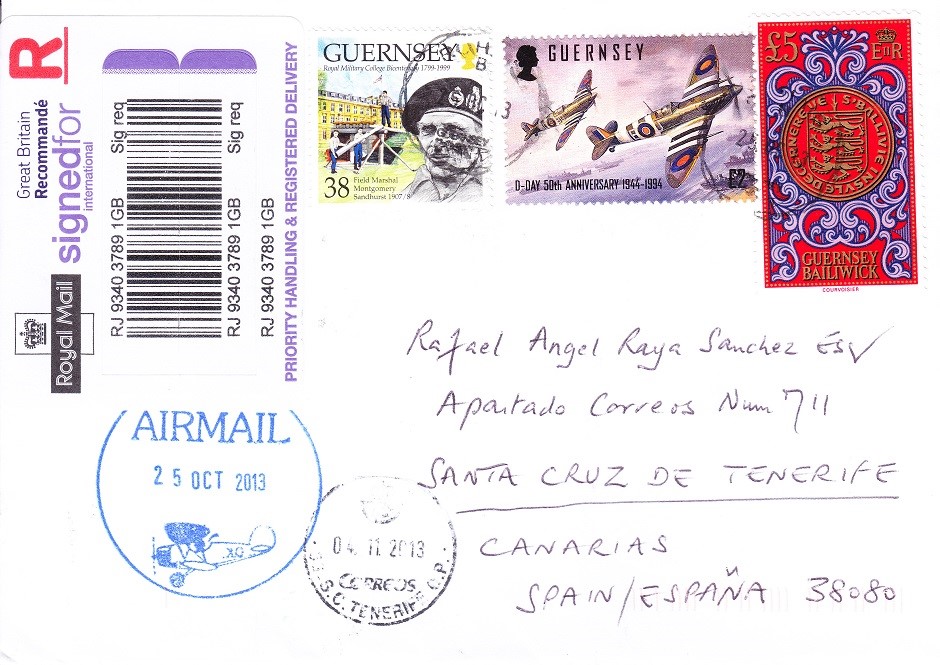 R
Great Britain
Recommandé
signedfor
international
Royal Mail
Sig req
RJ 9340 3789 1GB
Sig req
RJ 9340 3789 1GB
RJ 9340 3789 1GB
PRIORITY HANDLING & REGISTERED DELIVERY
GUERNSEY
Royal Military College Bicentenary 1799-1999
38
Field Marshal
Montgomery
Sandhurst 1907/8
GUERNSEY
D-DAY 50th ANNIVERSARY 1944-1994
£2
£5
EIIR
S'BALLIVIE INSVLE DE GERNEREYE
GUERNSEY
BAILIWICK
COURVOISIER
Rafael Angel Raya Sanchez Esq
Apartado Correos Num 711
SANTA CRUZ DE TENERIFE
CANARIAS
SPAIN/ESPAÑA 38080
AIRMAIL
25 OCT 2013
04. 11. 2013
CORREOS
S.C. TENERIFE O.P.